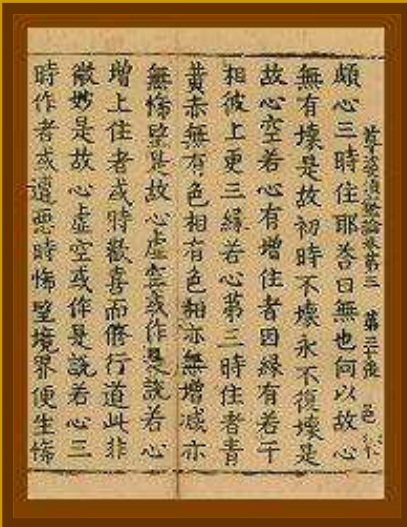 婆須蜜論卷第三 第三 邑
頗心三時住耶荅曰無也何以故心
無有壞是故初時不壞永不復壞是
故心空若心有增住者因緣有若干
相彼上更三緣若心第三時住者青
黃赤無有色相有色相亦無增減亦
無悕望是故心虛空或作是說若心
增上住者或時歡喜而脩行道此非
微妙是故心虛空或作是說若心三
時作者或遭惡時悕望境界便生悕